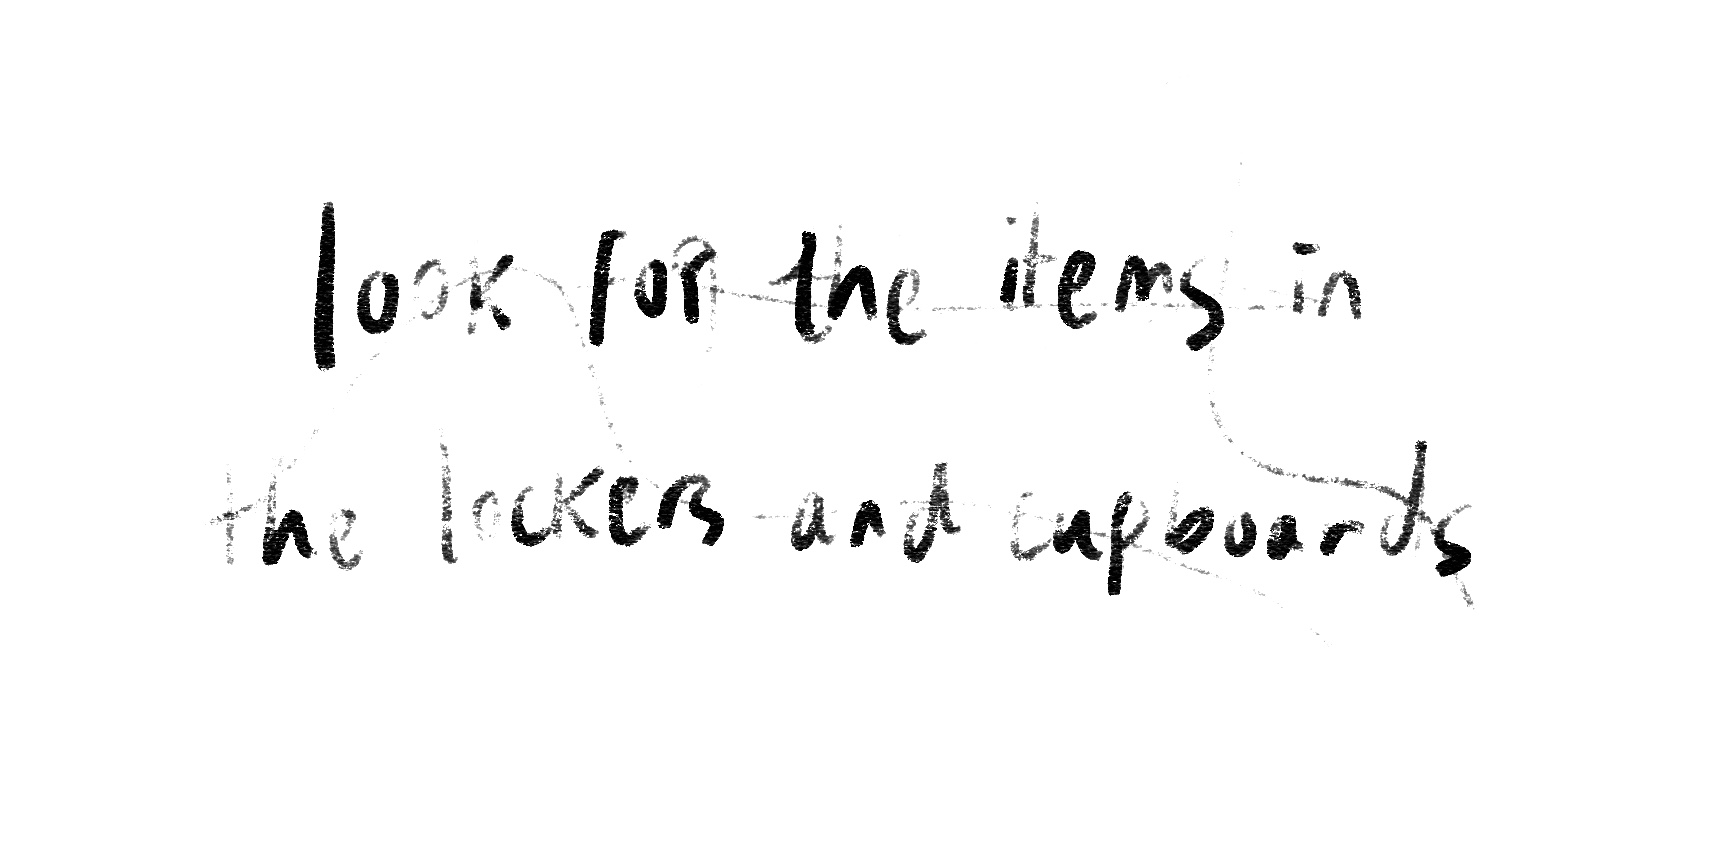 look for the items in
the lockers and cupboards